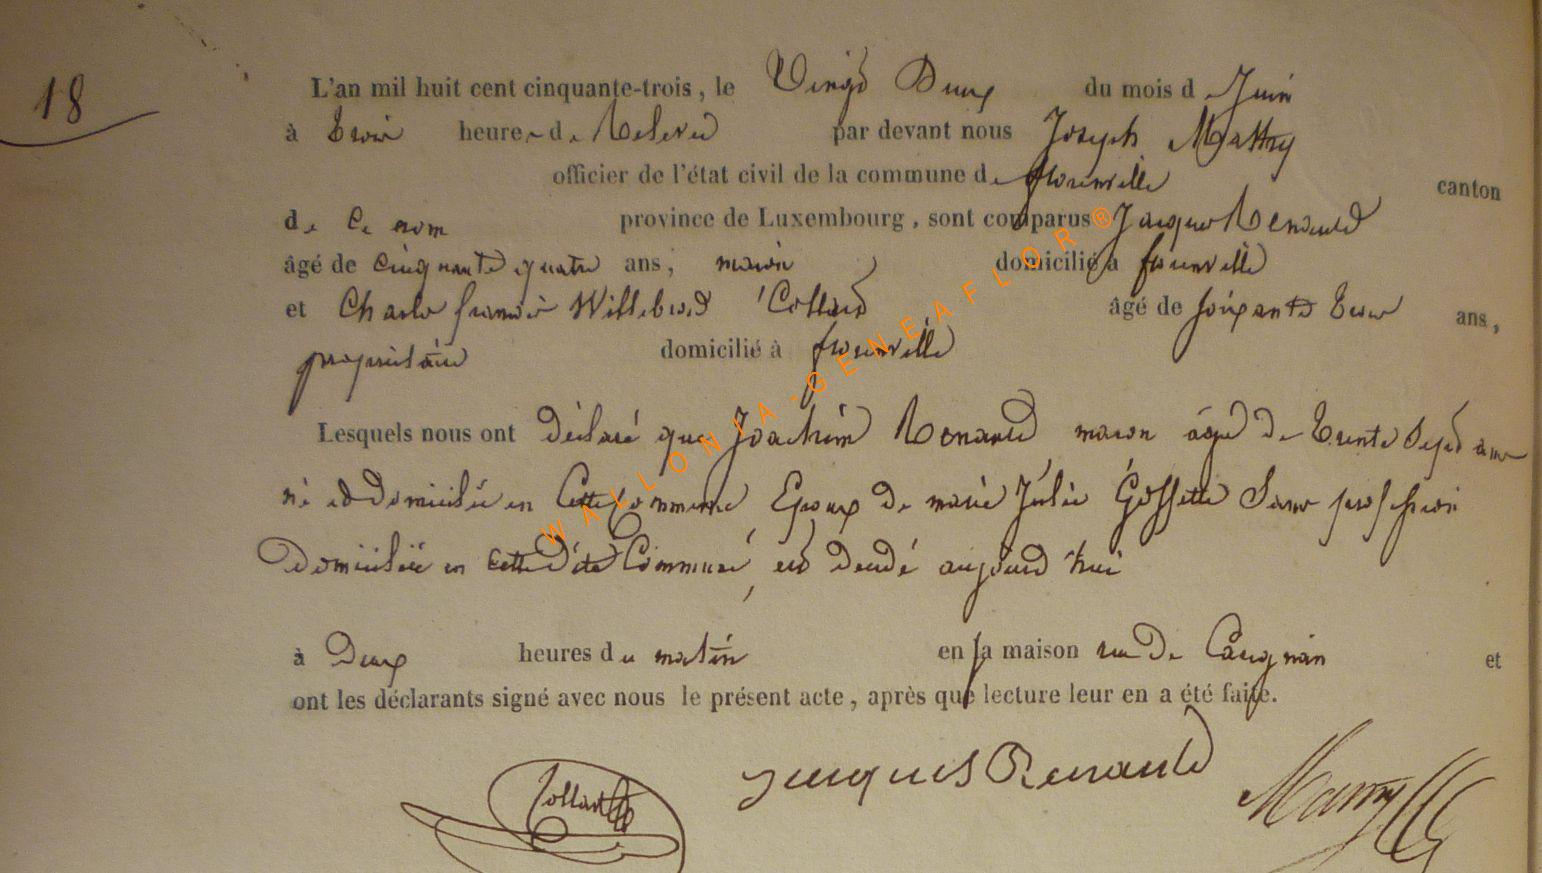 18
L'an mil huit cent cinquante-trois, le Vingt Deux du mois d Juin
à trois heures de Relevée par devant nous Joseph Mathy
officier de l'état civil de la commune de florenville canton
de Ce nom province de Luxembourg, sont comparus Jacques Renauld
âgé de Cinquante quatre ans, maçon domicilié à florenville
et Charles francois Willebrod Collard âgé de soixante trois ans,
propriétaire domicilié à florenville
Lesquels nous ont déclaré que Joachim Renauld maçon âgé de trente sept ans
né et domicilié en Cette Commune Epoux de marie Julie Goffette Sans profession
Domiciliée en cette dite Commune, est décédé aujourd'hui
à Deux heures du matin en sa maison rue De Carignan et
ont les déclarants signé avec nous le présent acte, après que lecture leur en a été faite.
Collard Jacques Renauld
WALLONIA-GENEAFLOR®